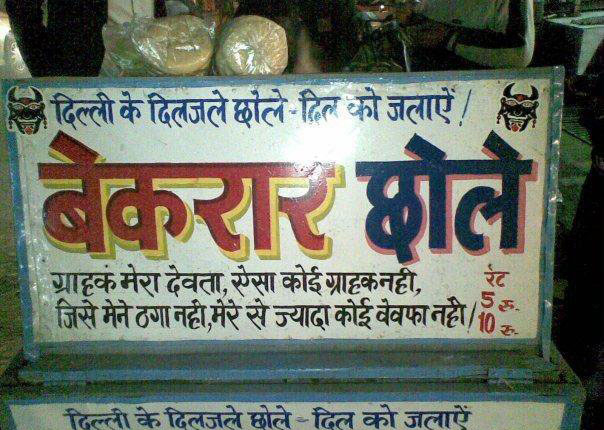 दिल्ली के दिलजले छोले - दिल को जलाऐं!
बेकरार छोले
ग्राहक मेरा देवता, ऐसा कोई ग्राहक नही,
जिसे मेने ठगा नही, मेरे से ज्यादा कोई वेवफा नही!
रेट
5 रु.
10 रु.
दिल्ली के दिलजले छोले - दिल को जलाऐं